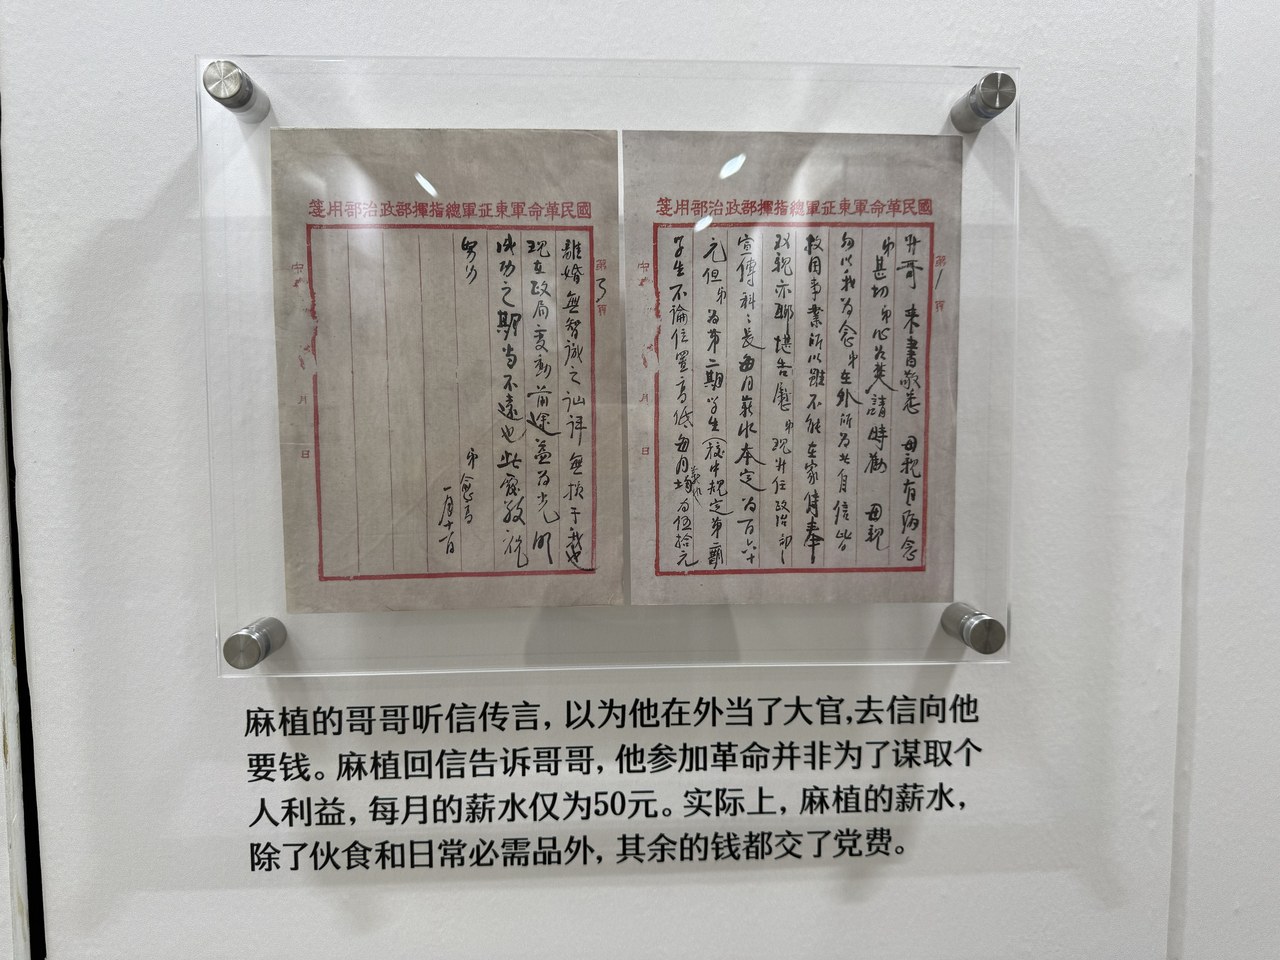 國民革命軍東征軍總指揮部政治部用箋
第1頁
升哥 来書敬悉 母親有病念
弟甚切弟心为美請時勸 母親
勿以我为念弟在外所为尤自信皆
救国事業所以雖不能在家侍奉
双親亦聊堪告慰弟現升任政治部
宣傳科科長每月薪水本定为百六十
元但弟为第二期学生(校中規定第二期
学生不論位置高低每月均为伍拾元
月
日
國民革命軍東征軍總指揮部政治部用箋
第3頁
離婚無智識之訕謗無損于我也
現在政局变動前途益为光明
成功之期当不遠也此覆敬祝
努力
弟
一月十一日
月
日
麻植的哥哥听信传言，以为他在外当了大官,去信向他
要钱。麻植回信告诉哥哥，他参加革命并非为了谋取个
人利益，每月的薪水仅为50元。实际上，麻植的薪水，
除了伙食和日常必需品外，其余的钱都交了党费。